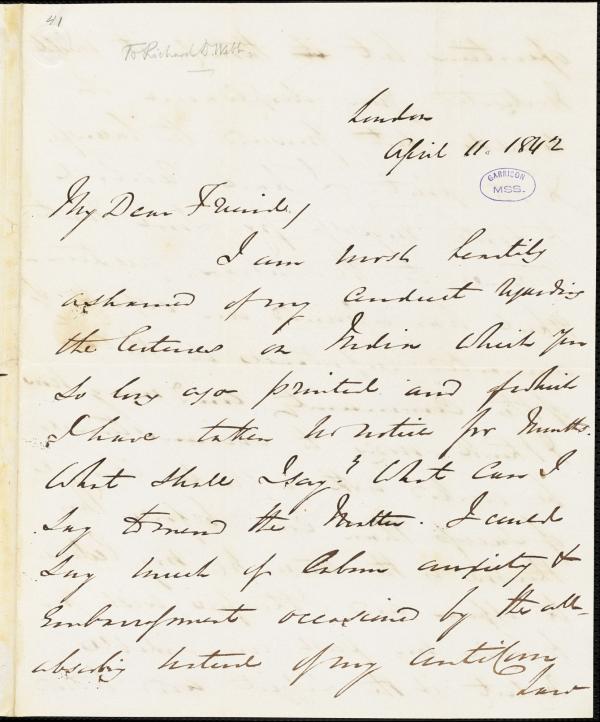 41
To Richard D. Webb.
London
April 11. 1842
GARRISON
MSS.
My Dear Friend,
I am most heartily
ashamed of my conduct regarding
the lectures on India which you
so long ago printed and of which
I have taken no notice for months.
What shall I say? What can I
say to mend the matter. I could
say much of labour anxiety &
embarrassment occasioned by the all-
absorbing nature of my anti Corn
Law